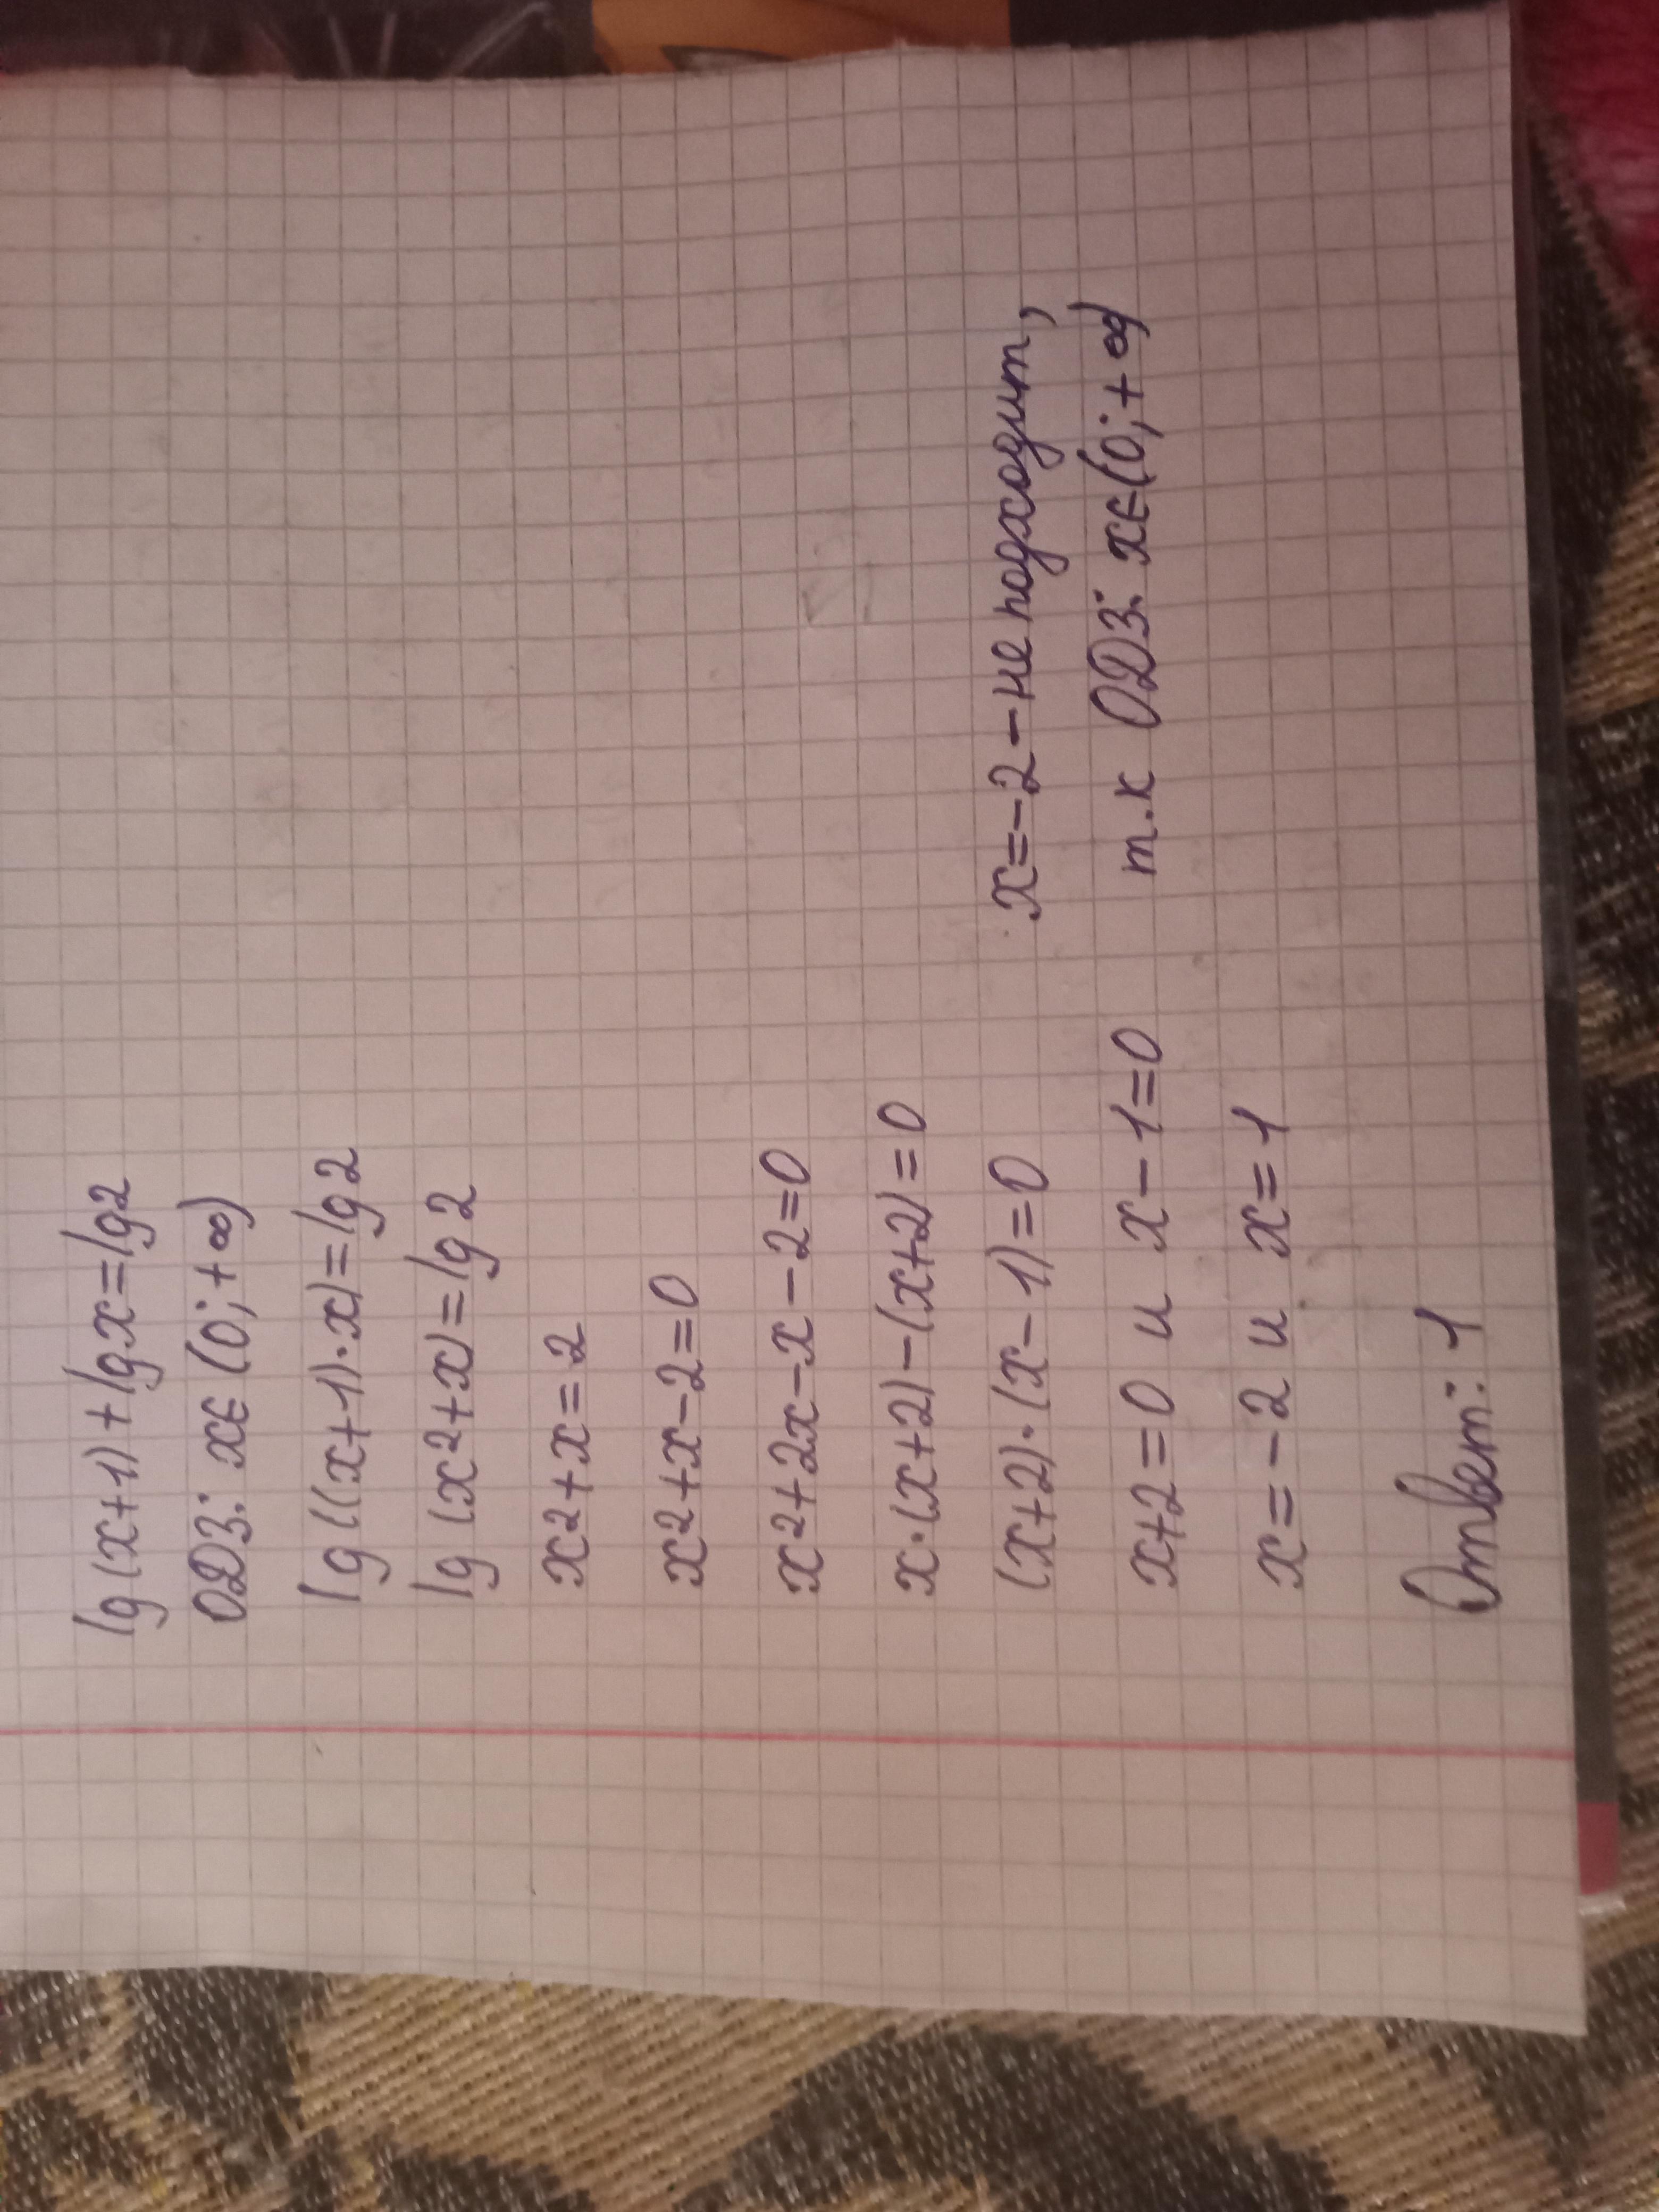 lg(x+1)+lgx=lg2
ОДЗ: x∈(0;+∞)
lg((x+1)·x)=lg2
lg(x²+x)=lg2
x²+x=2
x²+x-2=0
x²+2x-x-2=0
x·(x+2)-(x+2)=0
(x+2)·(x-1)=0
x+2=0 и x-1=0
x=-2 и x=1
x=-2-не подходит,
т.к ОДЗ: x∈(0;+∞)
Ответ: 1